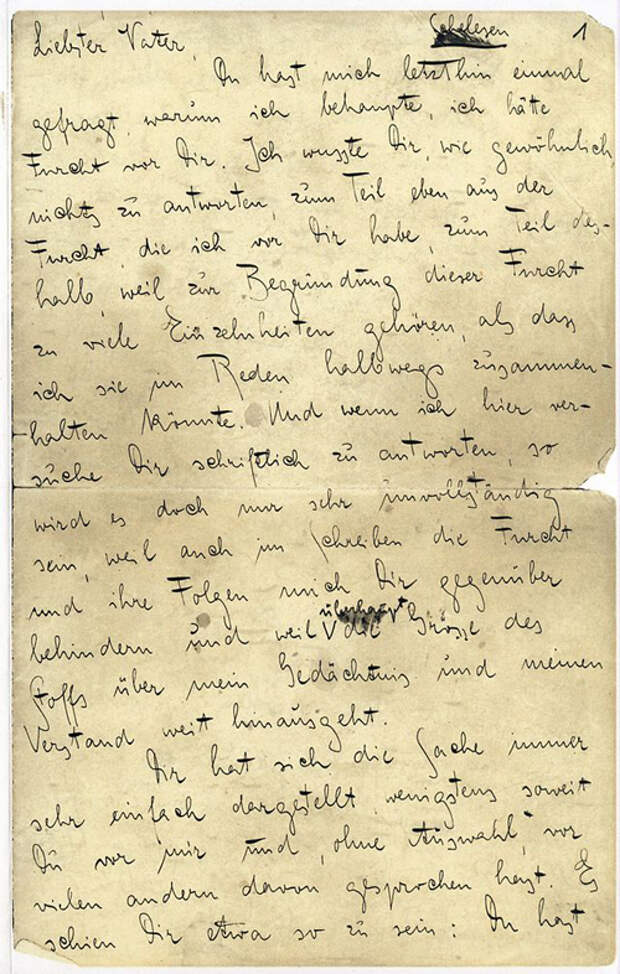 Schelesen 1
Liebster Vater,
Du hast mich letzthin einmal
gefragt, warum ich behaupte, ich hätte
Furcht vor Dir. Ich wusste Dir, wie gewöhnlich,
nichts zu antworten, zum Teil eben aus der
Furcht, die ich vor Dir habe, zum Teil des-
halb, weil zur Begründung dieser Furcht
zu viele Einzelnheiten gehören, als dass
ich sie im Reden halbwegs zusammen-
halten könnte. Und wenn ich hier ver-
suche Dir schriftlich zu antworten, so
wird es doch nur sehr unvollständig
sein, weil auch im Schreiben die Furcht
und ihre Folgen mich Dir gegenüber
behindern und weil überhaupt die Grösse des
Stoffs über mein Gedächtnis und meinen
Verstand weit hinausgeht.
Dir hat sich die Sache immer
sehr einfach dargestellt, wenigstens soweit
Du vor mir und, ohne Auswahl, vor
vielen andern davon gesprochen hast. Es
schien Dir etwa so zu sein: Du hast